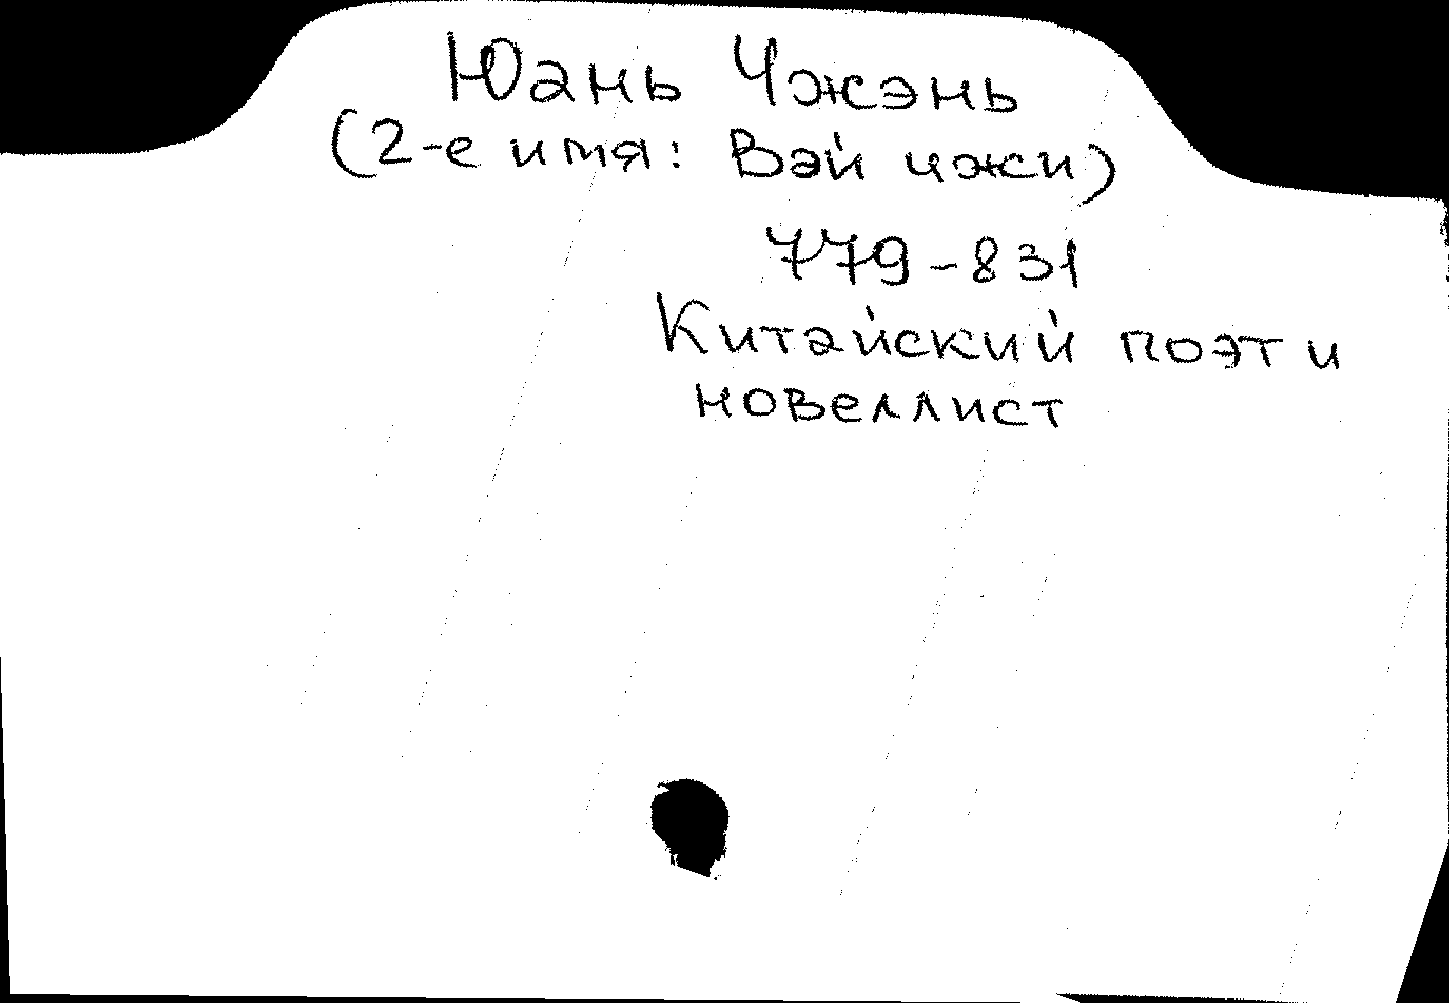 Юань Чжэнь
(2-е имя: Вэй чжи)
779-831
Китайский поэт и
новеллист